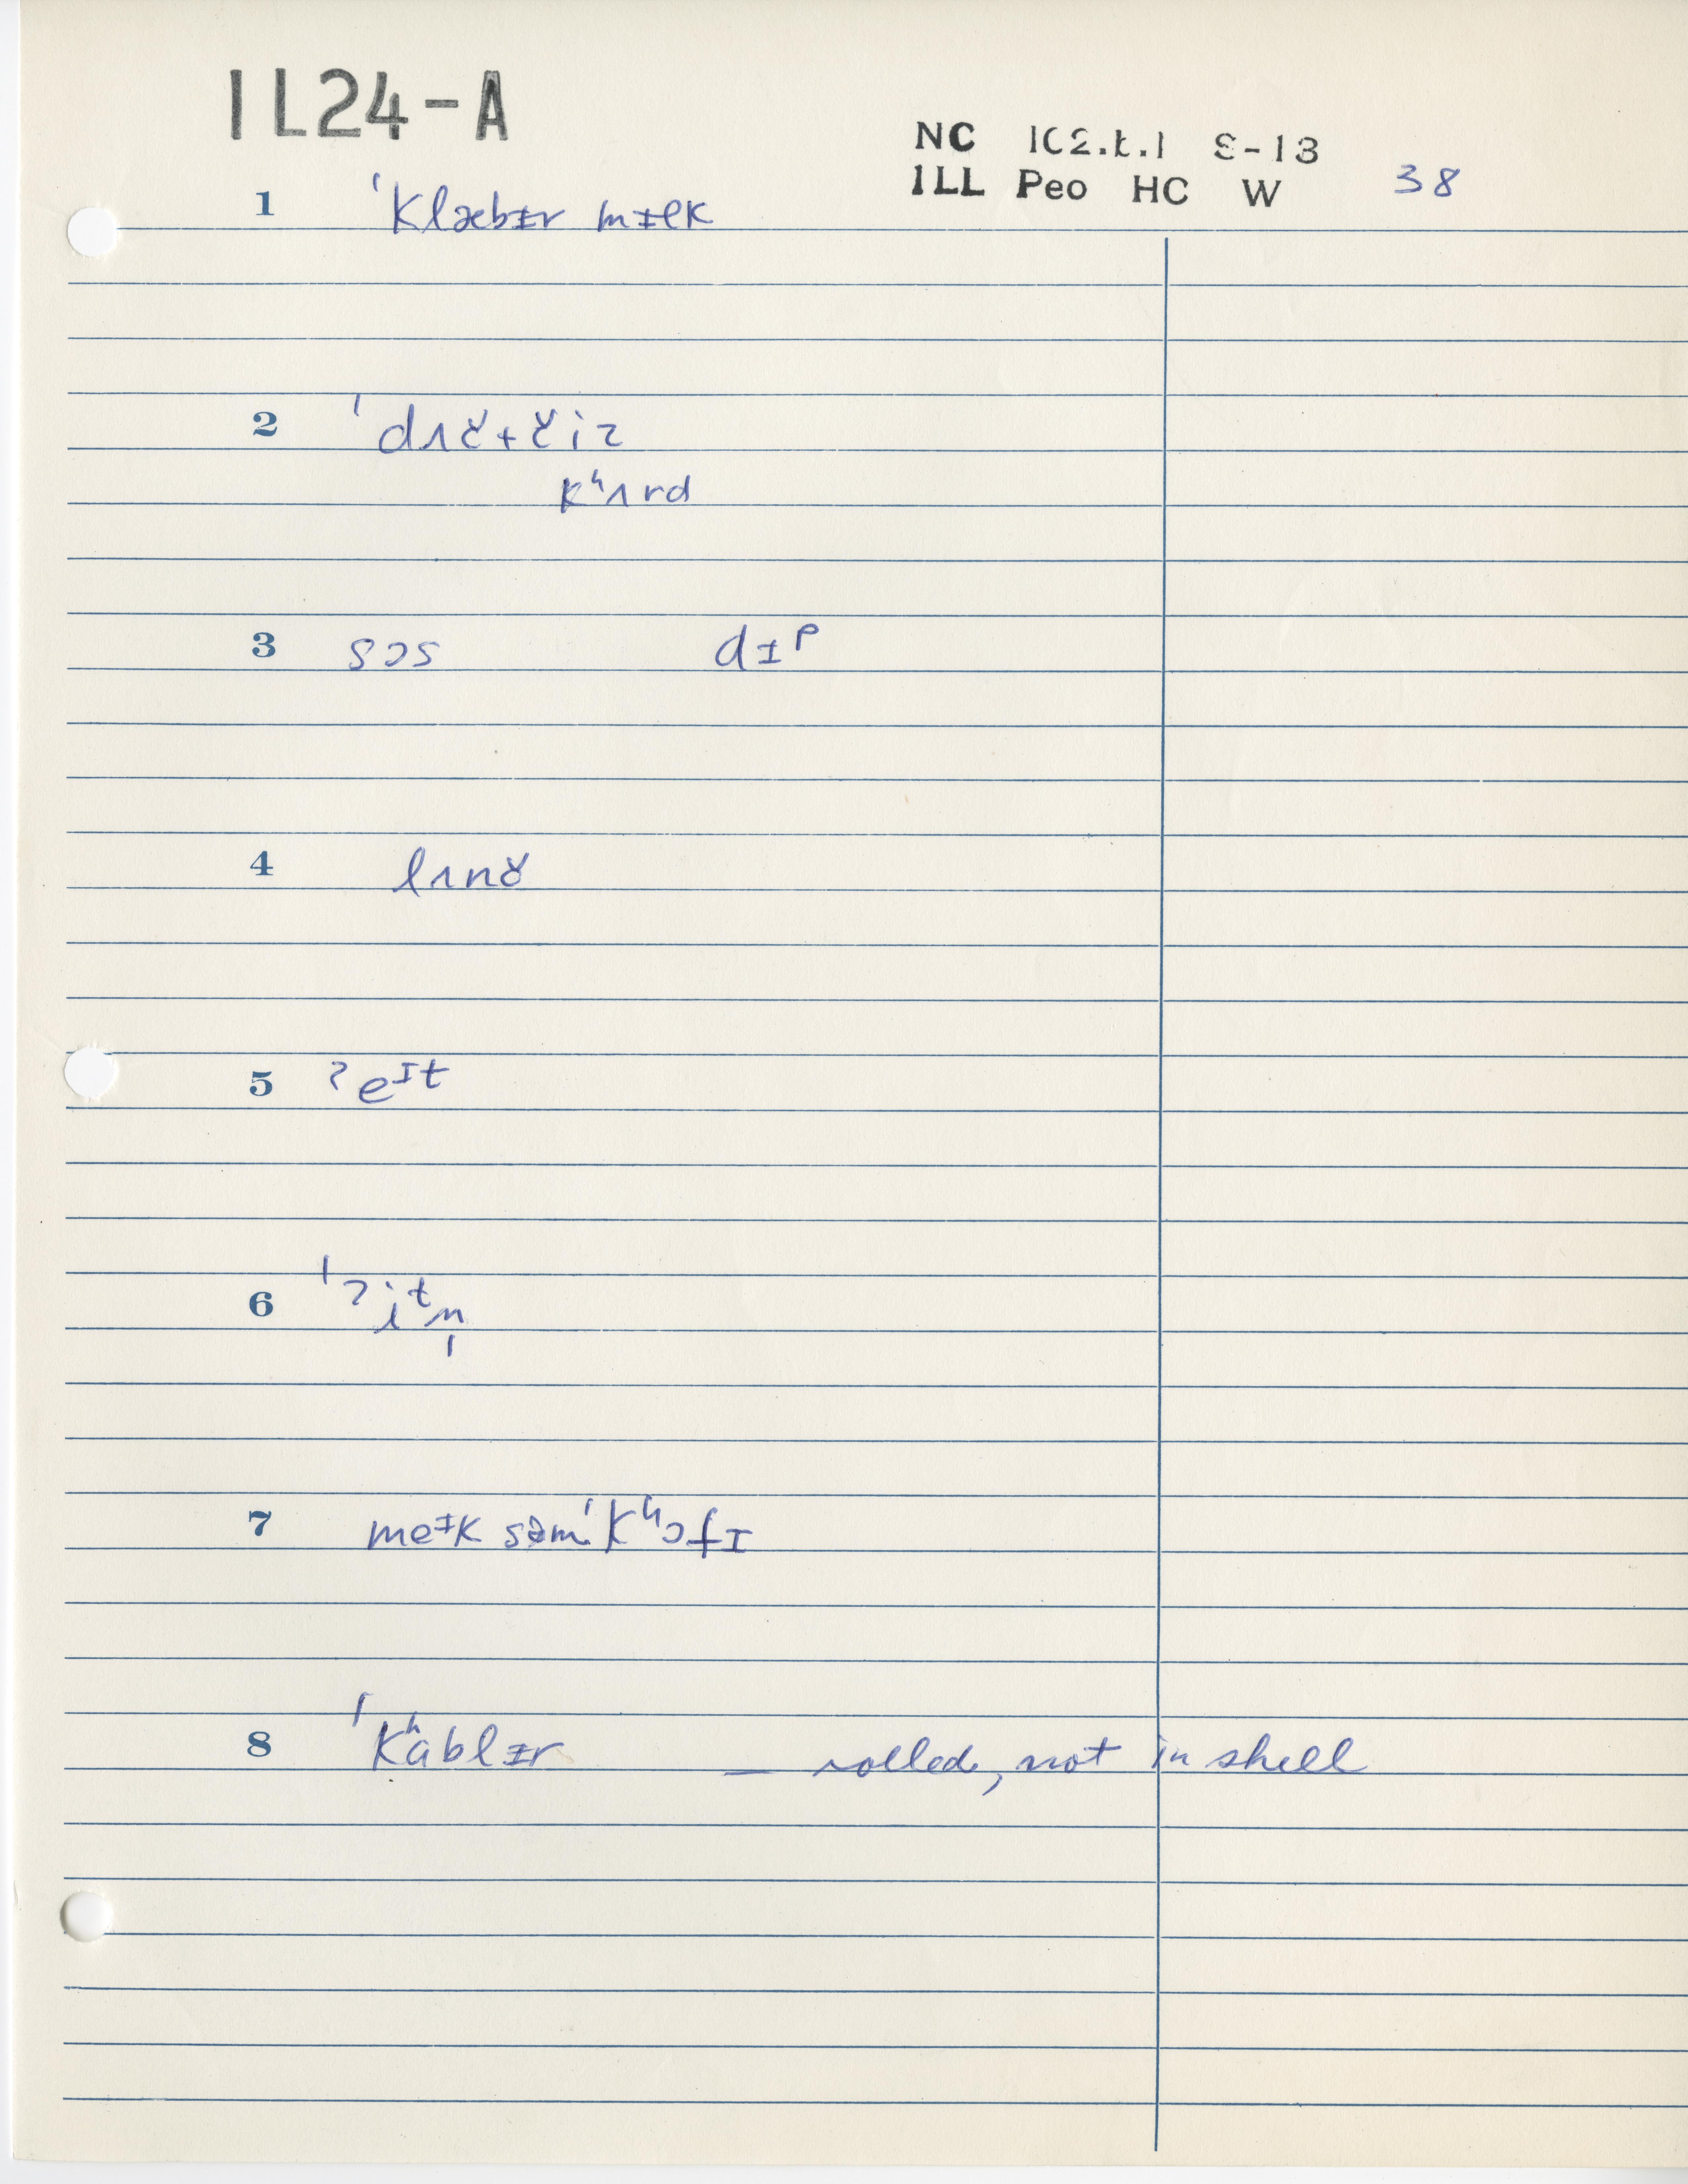 IL24-A
NC 1C2.t.1 S-13
ILL Peo HC W 38
1 ˈklæbɪr mɪlk
2 ˈdʌč+čiz
kʰʌrd
3 sɔs dɪᵖ
4 lʌnč
5 ʔeᴵt
6 ˈʔitn̩
7 meᴵk səm ˈkʰɔfɪ
8 ˈkʰablɪr — rolled, not in shell